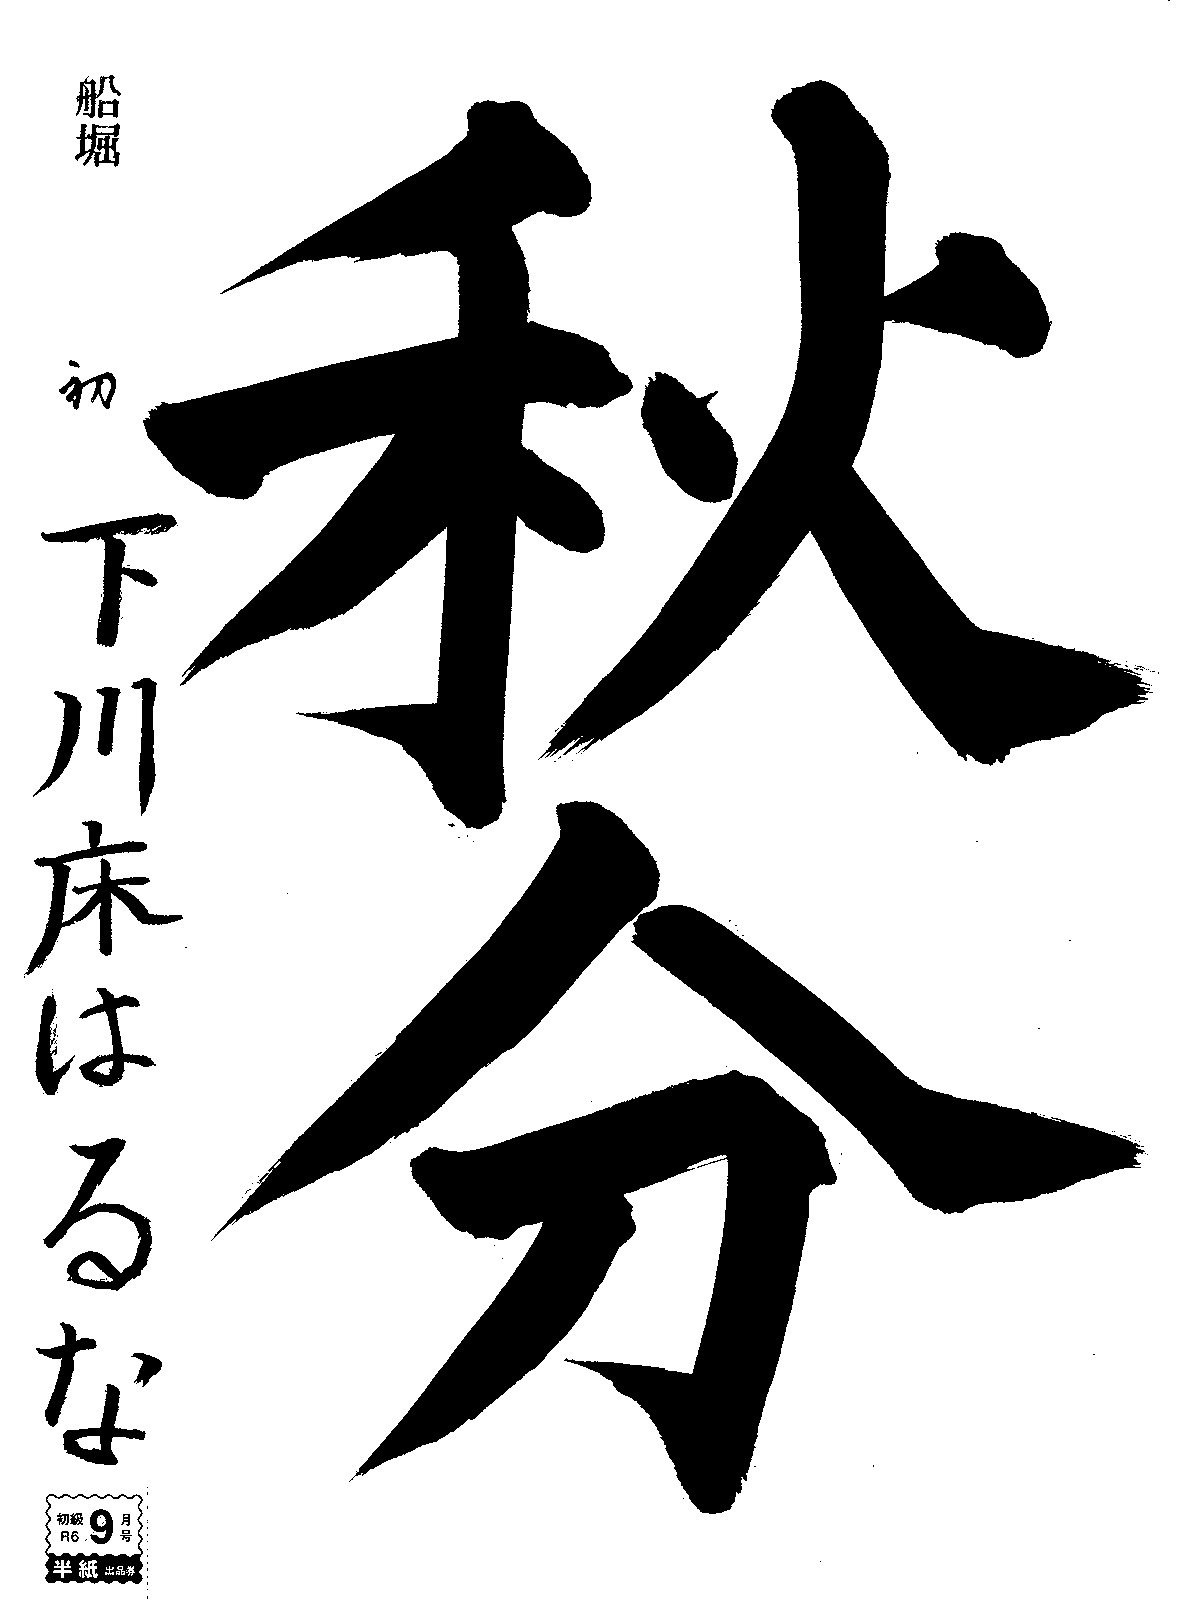 秋分
船堀
初
下川床はるな
初級
R6.9月号
半紙 出品券